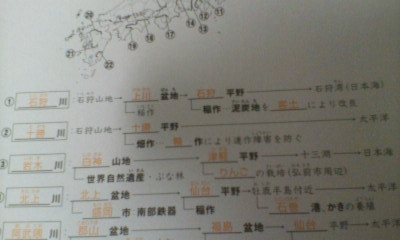 ⑳ ㉑ ㉒ ⑲ ⑱ ⑰ ⑭ ⑬ ⑫ ⑪
① 石狩 川 石狩山地 → 上川 盆地 → 石狩 平野 → 石狩湾(日本海)
稲作 稲作 泥炭地を 客土 により改良
② 十勝 川 石狩山地 → 十勝 平野 → 太平洋
畑作 輪 作により連作障害を防ぐ
③ 岩木 川 白神 山地 → 津軽 平野 → 十三湖 → 日本海
世界自然遺産・ぶな林 りんご の栽培(弘前市周辺)
北上 川 北上 盆地 → 仙台 平野→牡鹿半島付近 太平洋
盛岡 市:南部鉄器 稲作 石巻 港、かきの養殖
阿武隈 川 郡山 盆地 → 福島 盆地 → 仙台 平野 → 太平洋